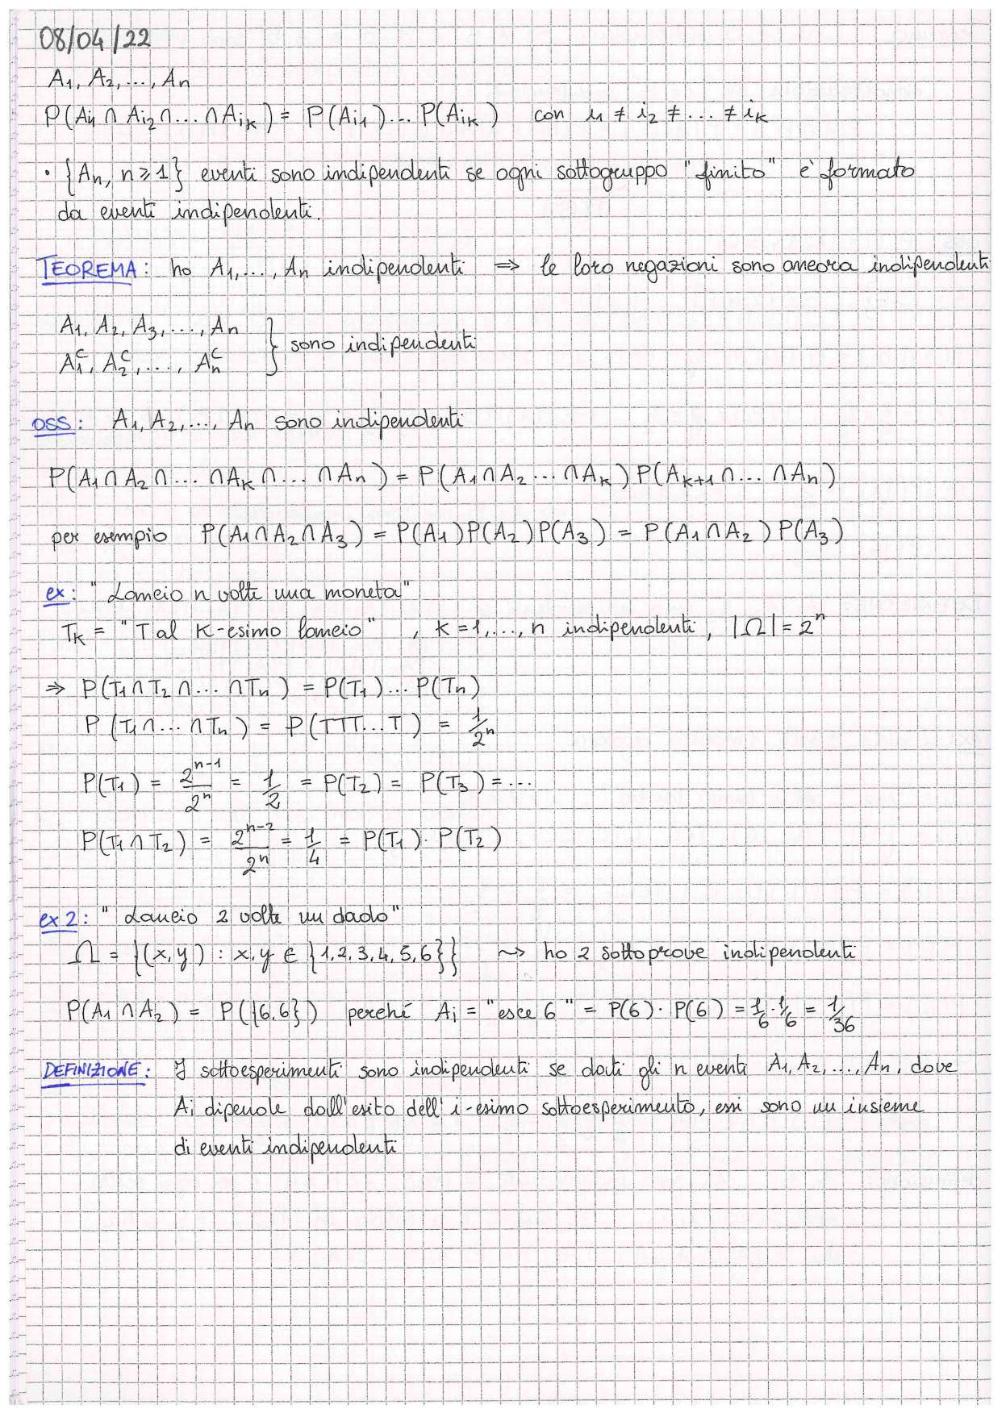 08/04/22
A₁, A₂, ..., Aₙ
P(Aᵢ₁ ∩ Aᵢ₂ ∩ ... ∩ Aᵢₖ) = P(Aᵢ₁)... P(Aᵢₖ) con i₁ ≠ i₂ ≠ ... ≠ iₖ
• {Aₙ, n ≥ 1} eventi sono indipendenti se ogni sottogruppo "finito" è formato
da eventi indipendenti.
TEOREMA: ho A₁, ..., Aₙ indipendenti ⇒ le loro negazioni sono ancora indipendenti
A₁, A₂, A₃, ..., Aₙ
A₁ᶜ, A₂ᶜ, ..., Aₙᶜ } sono indipendenti
OSS: A₁, A₂, ..., Aₙ sono indipendenti
P(A₁ ∩ A₂ ∩ ... ∩ Aₖ ∩ ... ∩ Aₙ) = P(A₁ ∩ A₂ ... ∩ Aₖ) P(Aₖ₊₁ ∩ ... ∩ Aₙ)
per esempio P(A₁ ∩ A₂ ∩ A₃) = P(A₁)P(A₂)P(A₃) = P(A₁ ∩ A₂) P(A₃)
ex: "Lancio n volte una moneta"
Tₖ = "T al k-esimo lancio" , k = 1, ..., n indipendenti, |Ω| = 2ⁿ
⇒ P(T₁ ∩ T₂ ∩ ... ∩ Tₙ) = P(T₁)... P(Tₙ)
P(T₁ ∩ ... ∩ Tₙ) = P(TTT...T) = 1/2ⁿ
P(T₁) = 2ⁿ⁻¹/2ⁿ = 1/2 = P(T₂) = P(T₃) = ...
P(T₁ ∩ T₂) = 2ⁿ⁻²/2ⁿ = 1/4 = P(T₁) · P(T₂)
ex 2: "Lancio 2 volte un dado"
Ω = {(x,y) : x,y ∈ {1,2,3,4,5,6}} ⇝ ho 2 sottoprove indipendenti
P(A₁ ∩ A₂) = P({6,6}) perché Aᵢ = "esce 6" = P(6) · P(6) = 1/6 · 1/6 = 1/36
DEFINIZIONE: I sottoesperimenti sono indipendenti se dati gli n eventi A₁, A₂, ..., Aₙ, dove
Aᵢ dipende dall'esito dell'i-esimo sottoesperimento, essi sono un insieme
di eventi indipendenti